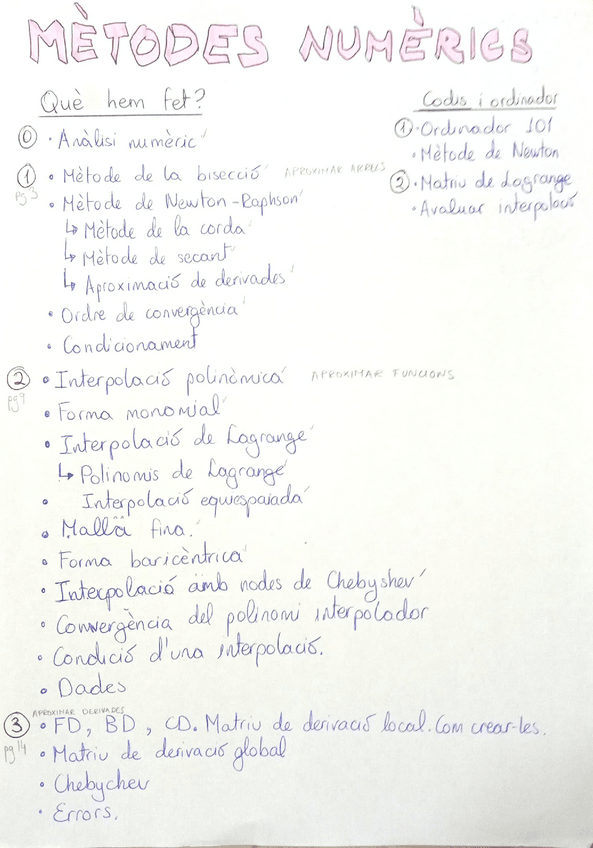 MÈTODES NUMÈRICS
Què hem fet?
0 • Anàlisi numèric
1 • Mètode de la bisecció APROXIMAR ARRELS
pg 3
• Mètode de Newton-Raphson
↳ Mètode de la corda
↳ Mètode de secant
↳ Aproximació de derivades
• Ordre de convergència
• Condicionament
2 • Interpolació polinòmica APROXIMAR FUNCIONS
pg 9
• Forma monomial
• Interpolació de Lagrange
↳ Polinomis de Lagrange
• Interpolació equiespaiada
• Malla fina.
• Forma baricèntrica
• Interpolació amb nodes de Chebyshev
• Convergència del polinomi interpolador
• Condició d'una interpolació.
• Dades
APROXIMAR DERIVADES
3 • FD, BD, CD. Matriu de derivació local. Com crear-les.
pg 14
• Matriu de derivació global
• Chebychev
• Errors.
Codis i ordinador
1 • Ordinador 101
• Mètode de Newton
2 • Matriu de Lagrange
• Avaluar interpolació